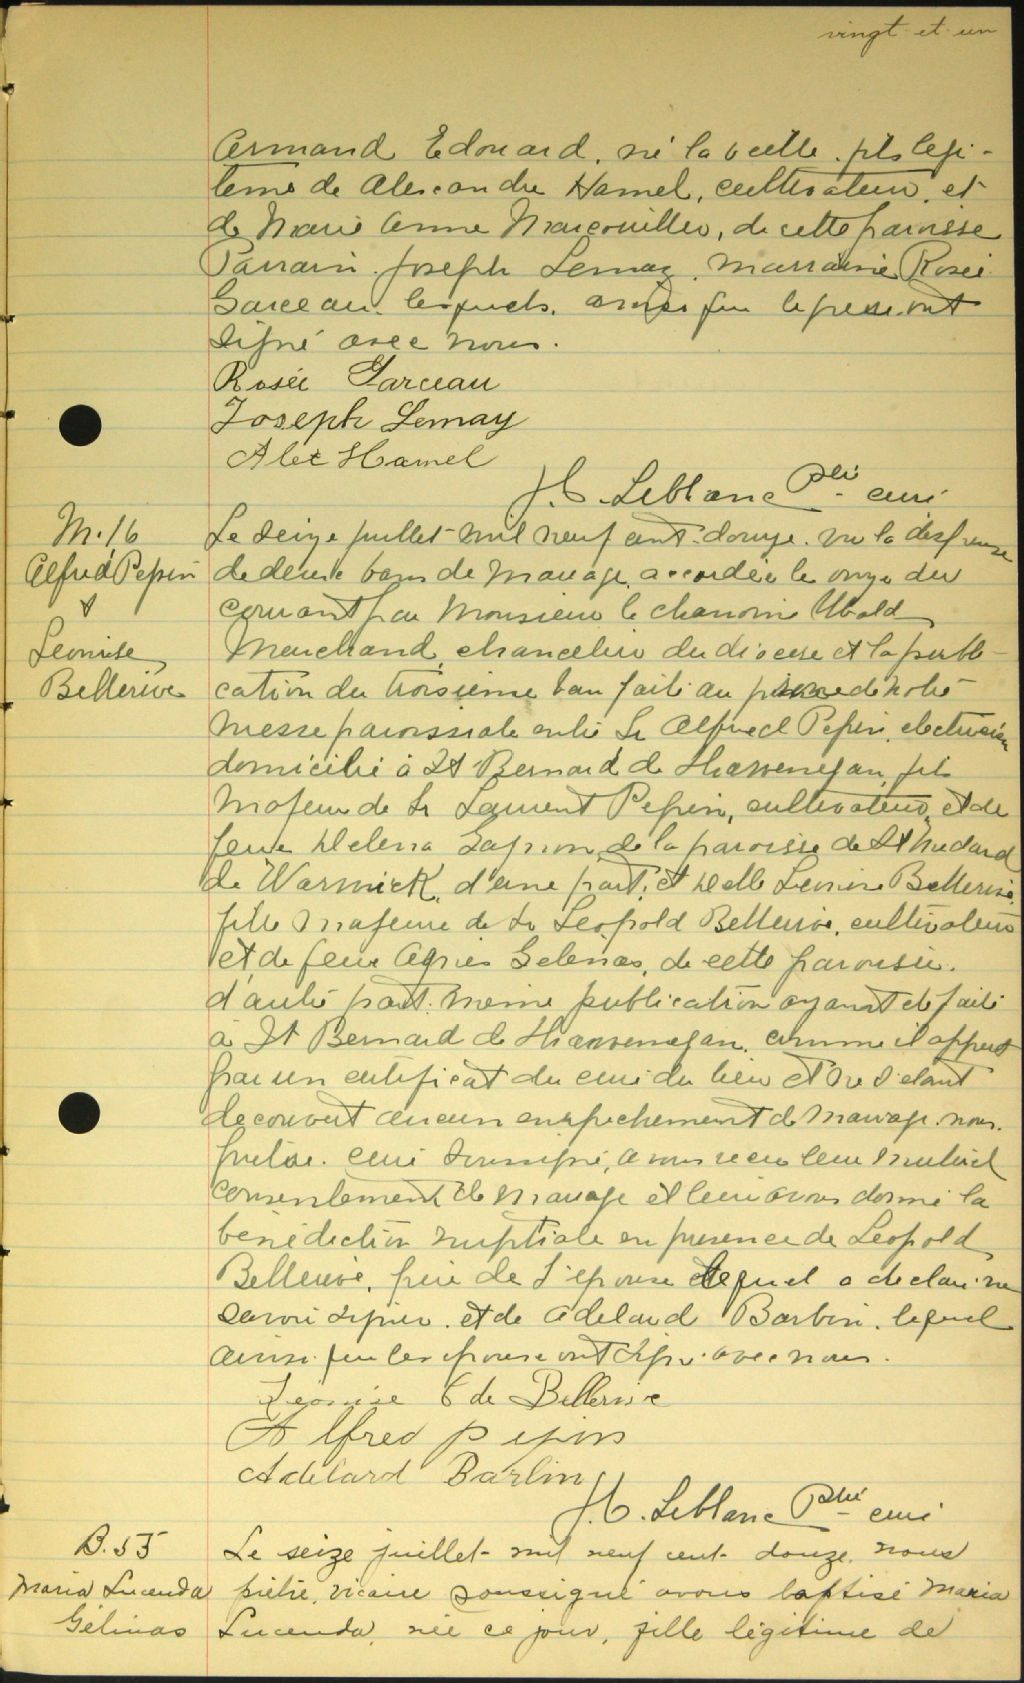 vingt et un
Armand Edouard, né la veille, fils légi-
time de Alexandre Hamel, cultivateur, et
de Marie Anne Marcouiller, de cette paroisse
Parrain Joseph Lemay, marraine Rosée
Garceau lesquels, ainsi que le père ont
signé avec nous.
Rosée Garceau
Joseph Lemay
Alex Hamel
J. C. Leblanc Ptre curé
M. 16
Alfred Pepin
&
Leonise
Bellerive
Le seize juillet mil neuf cent douze. vu la dispense
de deux bans de mariage, accordée le onze du
courant par Monsieur le chanoine Ubald
Marchand, chancelier du diocèse et la publi-
cation du troisième ban faite au prone de notre
messe paroissiale entre Sr Alfred Pepin, electricien
domicilié à St Bernard de Shawenegan, fils
majeur de Sr Laurent Pepin, cultivateur, et de
feue Delena Gagnon de la paroisse de St Medard
de Warwick, d'une part, et Delle Leonise Bellerive,
fille majeure de Sr Leopold Bellerive, cultivateur
et de feue Agnes Gelinas, de cette paroisse.
d'autre part. meme publication ayant ete faite
à St Bernard de Shawenegan, comme il appert
par un certificat du curé du lieu et ne s'etant
decouvert aucun empechement de mariage. nous.
prêtre. curé soussigné, avons reçu leur mutuel
consentement de mariage et leur avons donné la
bénédiction nuptiale en presence de Leopold
Bellerive, père de l'epouse lequel a declaré ne
savoir signer. et de Adelard Barbin. lequel
ainsi que les epoux ont signé avec nous.
Léonise de Bellerive
Alfred Pepin
Adelard Barbin
J. C. Leblanc Ptre curé
B. 55
Maria Lucenda
Gélinas
Le seize juillet mil neuf cent douze, nous
prêtre, vicaire soussigné avons baptisé Maria
Lucenda, née ce jour, fille légitime de